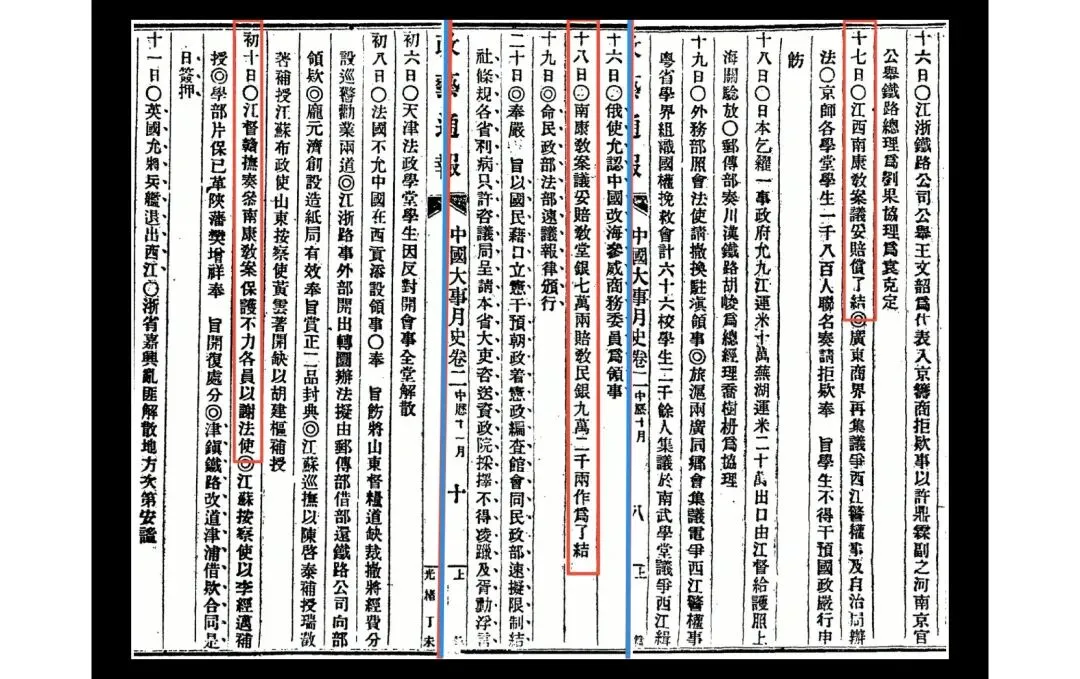 十六日〇江浙鐵路公司公舉王文韶爲代表入京籌商拒欵事以許鼎霖副之河南京官
公舉鐵路總理爲劉果協理爲袁克定
十七日〇江西南康敎案議妥賠償了結◎廣東商界再集議爭西江警權事及自治局辦
法〇京師各學堂學生一千八百人聯名奏請拒欵奉　旨學生不得干預國政嚴行申
飭
十八日〇日本乞糴一事政府允九江運米十萬蕪湖運米二十萬出口由江督給護照上
海關驗放〇郵傳部奏川漢鐵路胡峻爲總經理喬樹枬爲協理
十九日〇外務部照會法使請撤換駐滇領事◎旅滬兩廣同鄕會集議電爭西江警權事
粵省學界組織國權挽救會計六十六校學生二千餘人集議於南武學堂議爭西江緝
政藝通報　中國大事月史卷二　中歷十月　八　上
十六日〇俄使允認中國改海參威商務委員爲領事
十八日〇南康敎案議妥賠敎堂銀七萬兩賠敎民銀九萬二千兩作爲了結
十九日◎命民政部法部速議報律頒行
二十日◎奉嚴　旨以國民藉口立憲干預朝政着憲政編查館會同民政部速擬限制結
社條規各省利病只許咨議局呈請本省大吏咨送資政院採擇不得凌躐及胥動浮言
政藝通報　中國大事月史卷二　中歷十一月　十　上　光緒丁未
初六日〇天津法政學堂學生因反對開會事全堂解散
初八日〇法國不允中國在西貢添設領事〇奉　旨飭將山東督糧道缺裁撤將經費分
設巡警勸業兩道◎江浙路事外部開出轉圜辦法擬由郵傳部借部還鐵路公司向部
領欵◎龐元濟創設造紙局有效奉旨賞正二品封典◎江蘇巡撫以陳啓泰補授瑞澂
著補授江蘇布政使山東按察使黃雲著開缺以胡建樞補授
初十日〇江督贛撫奏參南康敎案保護不力各員以謝法使◎江蘇按察使以李經邁補
授◎學部片保已革陝藩樊增祥奉　旨開復處分◎津鎭鐵路改道津浦借欵合同是
日簽押
十一日〇英國允將兵艦退出西江〇浙省嘉興亂匪解散地方次第安謐